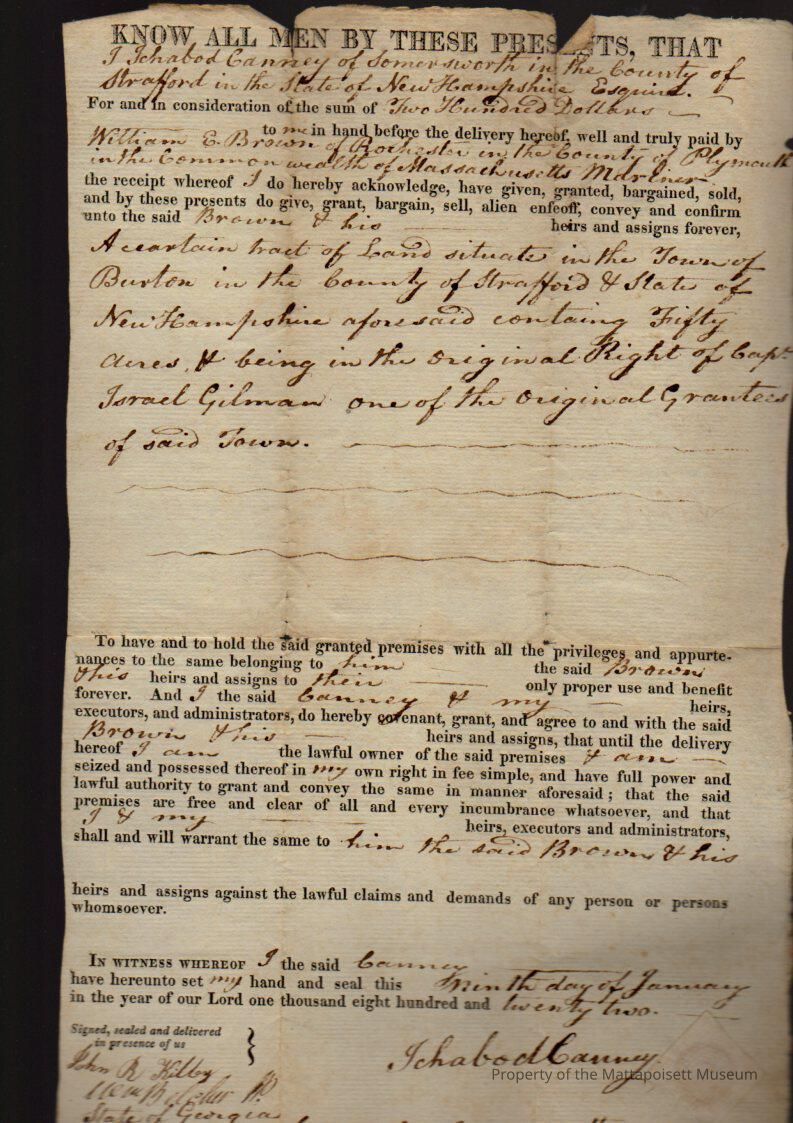 KNOW ALL MEN BY THESE PRESENTS, THAT
I Ichabod Canney of Somersworth in the County of
Strafford in the State of New Hampshire Esquire.
For and in consideration of the sum of Two Hundred Dollars
to me in hand before the delivery hereof, well and truly paid by
William E. Brown of Rochester in the County of Plymouth
in the Common wealth of Massachusetts Mariner
the receipt whereof I do hereby acknowledge, have given, granted, bargained, sold,
and by these presents do give, grant, bargain, sell, alien enfeoff, convey and confirm
unto the said Brown & his heirs and assigns forever,
A certain tract of Land situate in the Town of
Burton in the County of Strafford & State of
New Hampshire aforesaid containg Fifty
acres, & being in the original Right of Capt.
Israel Gilman one of the original Grantees
of said Town.
To have and to hold the said granted premises with all the privileges and appurte-
nances to the same belonging to him the said Brown
& his heirs and assigns to their only proper use and benefit
forever. And I the said Canney & my heirs,
executors, and administrators, do hereby covenant, grant, and agree to and with the said
Brown & his heirs and assigns, that until the delivery
hereof I am the lawful owner of the said premises & am
seized and possessed thereof in my own right in fee simple, and have full power and
lawful authority to grant and convey the same in manner aforesaid; that the said
premises are free and clear of all and every incumbrance whatsoever, and that
I & my heirs, executors and administrators,
shall and will warrant the same to him the said Brown & his
heirs and assigns against the lawful claims and demands of any person or persons
whomsoever.
IN WITNESS WHEREOF I the said Canney
have hereunto set my hand and seal this ninth day of January
in the year of our Lord one thousand eight hundred and twenty two.
Signed, sealed and delivered
in presence of us
Ichabod Canney
John R Kilby
State of Georgia
Property of the Mattapoisett Museum